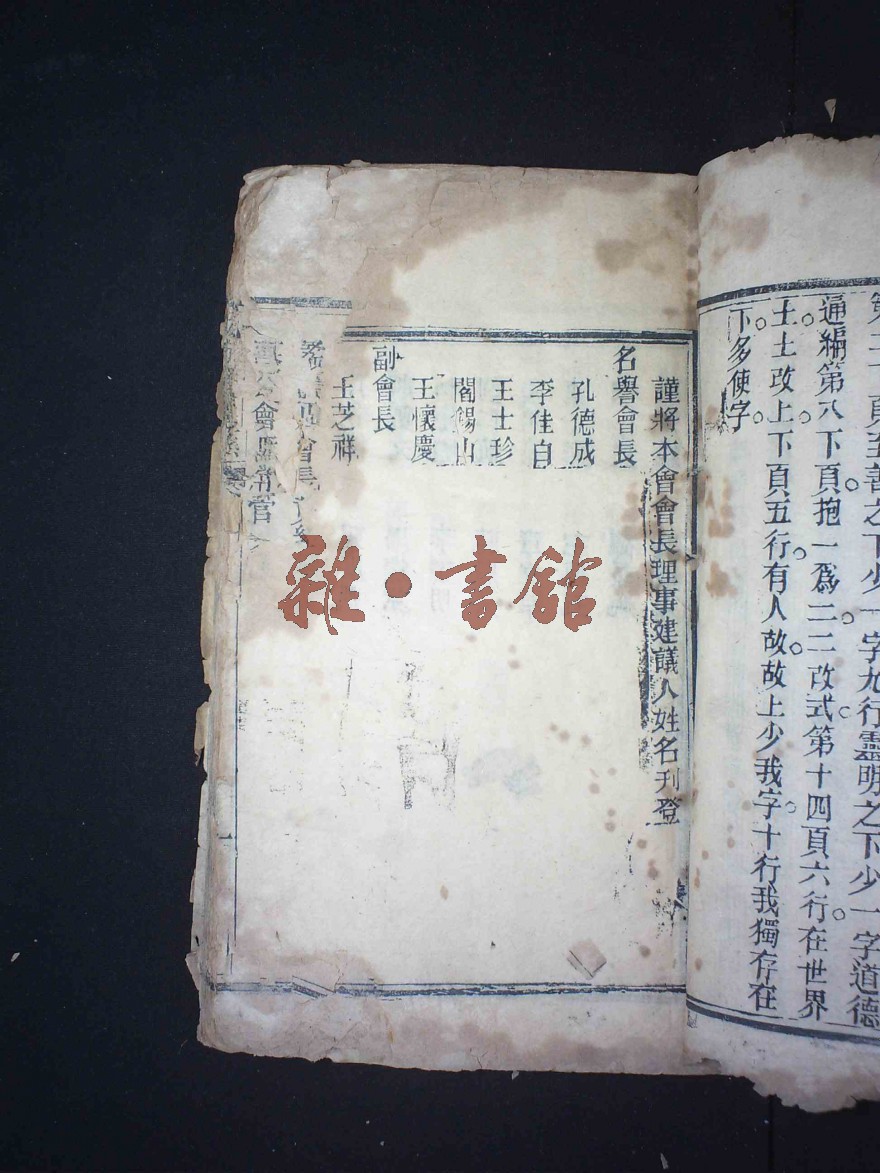 頁至善之下少一字九行靈明之下少一字道德
通編第八下頁抱一爲二二改式第十四頁六行在世界
土土改上下頁五行有人故故上少我字十行我獨存在
下多使字
謹將本會會長理事建議人姓名刊登
名譽會長
孔德成
李佳白
王士珍
閻錫山
王懷慶
副會長
王芝祥
會長
會
雜·書館